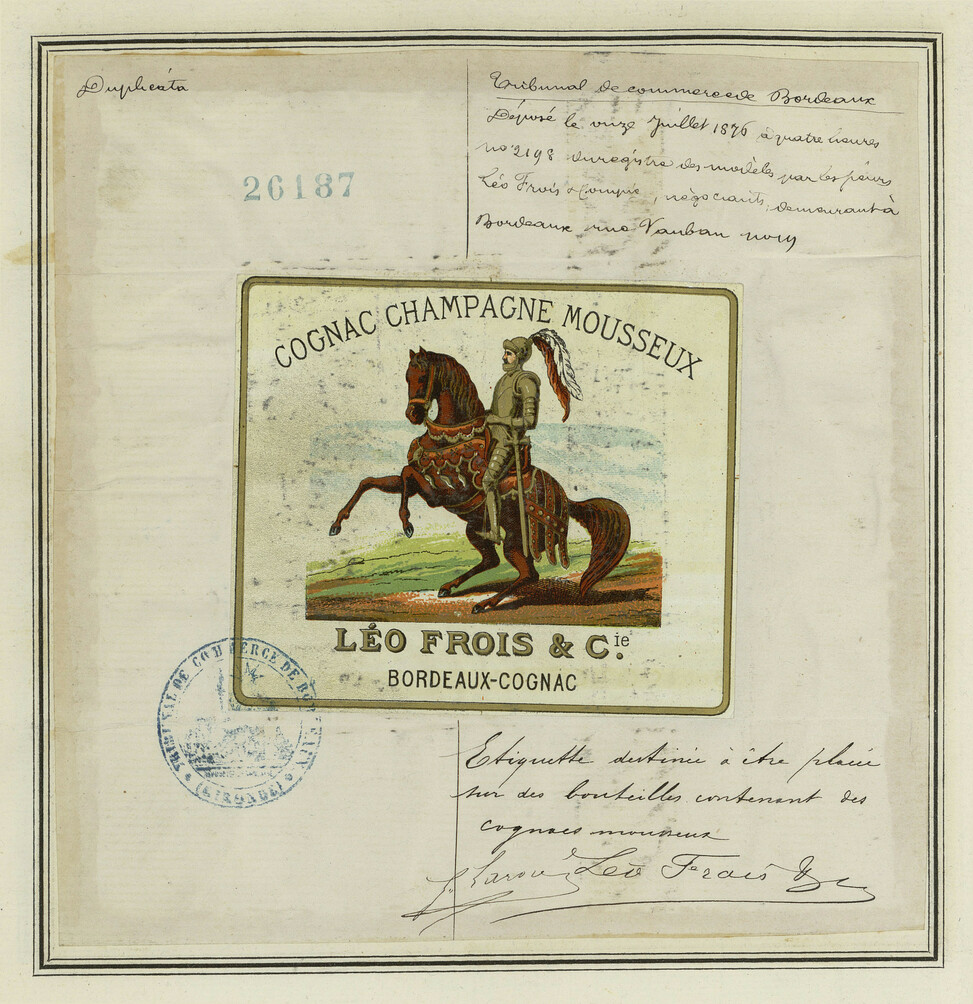 Duplicata
Tribunal de commerce de Bordeaux
Déposé le onze Juillet 1876 à quatre heures
no 2198 du registre des modèles par les sieurs
Léo Frois & Compie, négociants, demeurant à
Bordeaux rue Vauban
26187
COGNAC CHAMPAGNE MOUSSEUX
LÉO FROIS & Cie.
BORDEAUX-COGNAC
TRIBUNAL DE COMMERCE DE BORDEAUX
(GIRONDE)
Etiquette destinée à être placée
sur des bouteilles contenant des
cognacs mousseux
Léo Frois